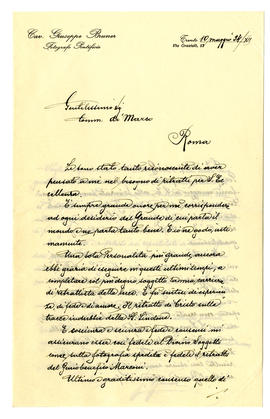 Cav. Giuseppe Bruner
Fotografo Pontificio
Trento 10 maggio
Via Grazioli, 13
Gentilissimo Sig.
Comm. di Marco
Roma
Le sono stato tanto riconoscente di aver
pensato a me nel bisogno di ritratti per S. Ec
cellenza.
È sempre grande onore per me corrispondere
ad ogni desiderio del Grande di cui parla il
mondo e ne parla tanto bene. E io ne godo, inti
mamente.
Una sola Personalità più grande, ancora
ebbi grazia di eseguire in questi ultimi tempi, a
completare col più degno soggetto la mia carriera
di ritrattista della luce. È fu
di fede di amore, Il ritratto di Cristo sulla
tracce indubbie della S. Sindone.
E scienza e
assicurano esser così fedele al Divino Soggetto
come sulla fotografia spedita è fedele il ritratto
del Genio benefico Marconi.
Ultimo e graditissimo consenso quello di